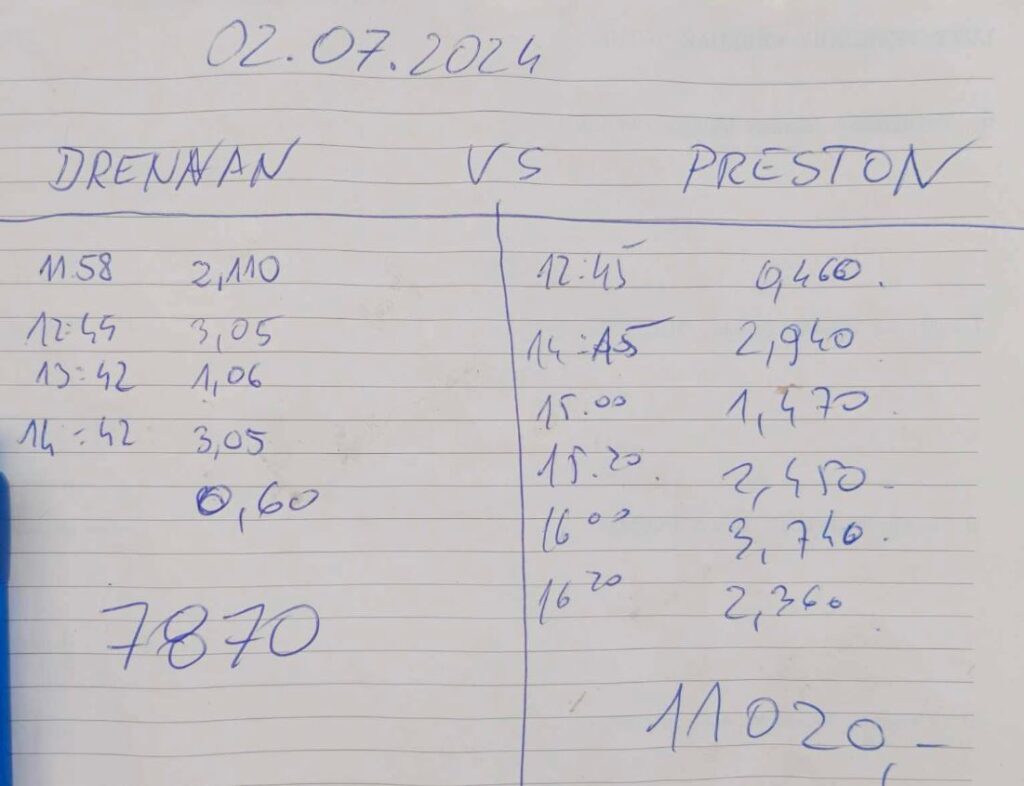 02.07.2024
DRENNAN VS PRESTON
11:58 2,110
12:45 3,05
13:42 1,06
14:42 3,05
0,60
7870
12:45 0,460.
14:15 2,940
15.00 1,470
15.20 2,450
16 00 3,740.
16 20 2,360
11020,-